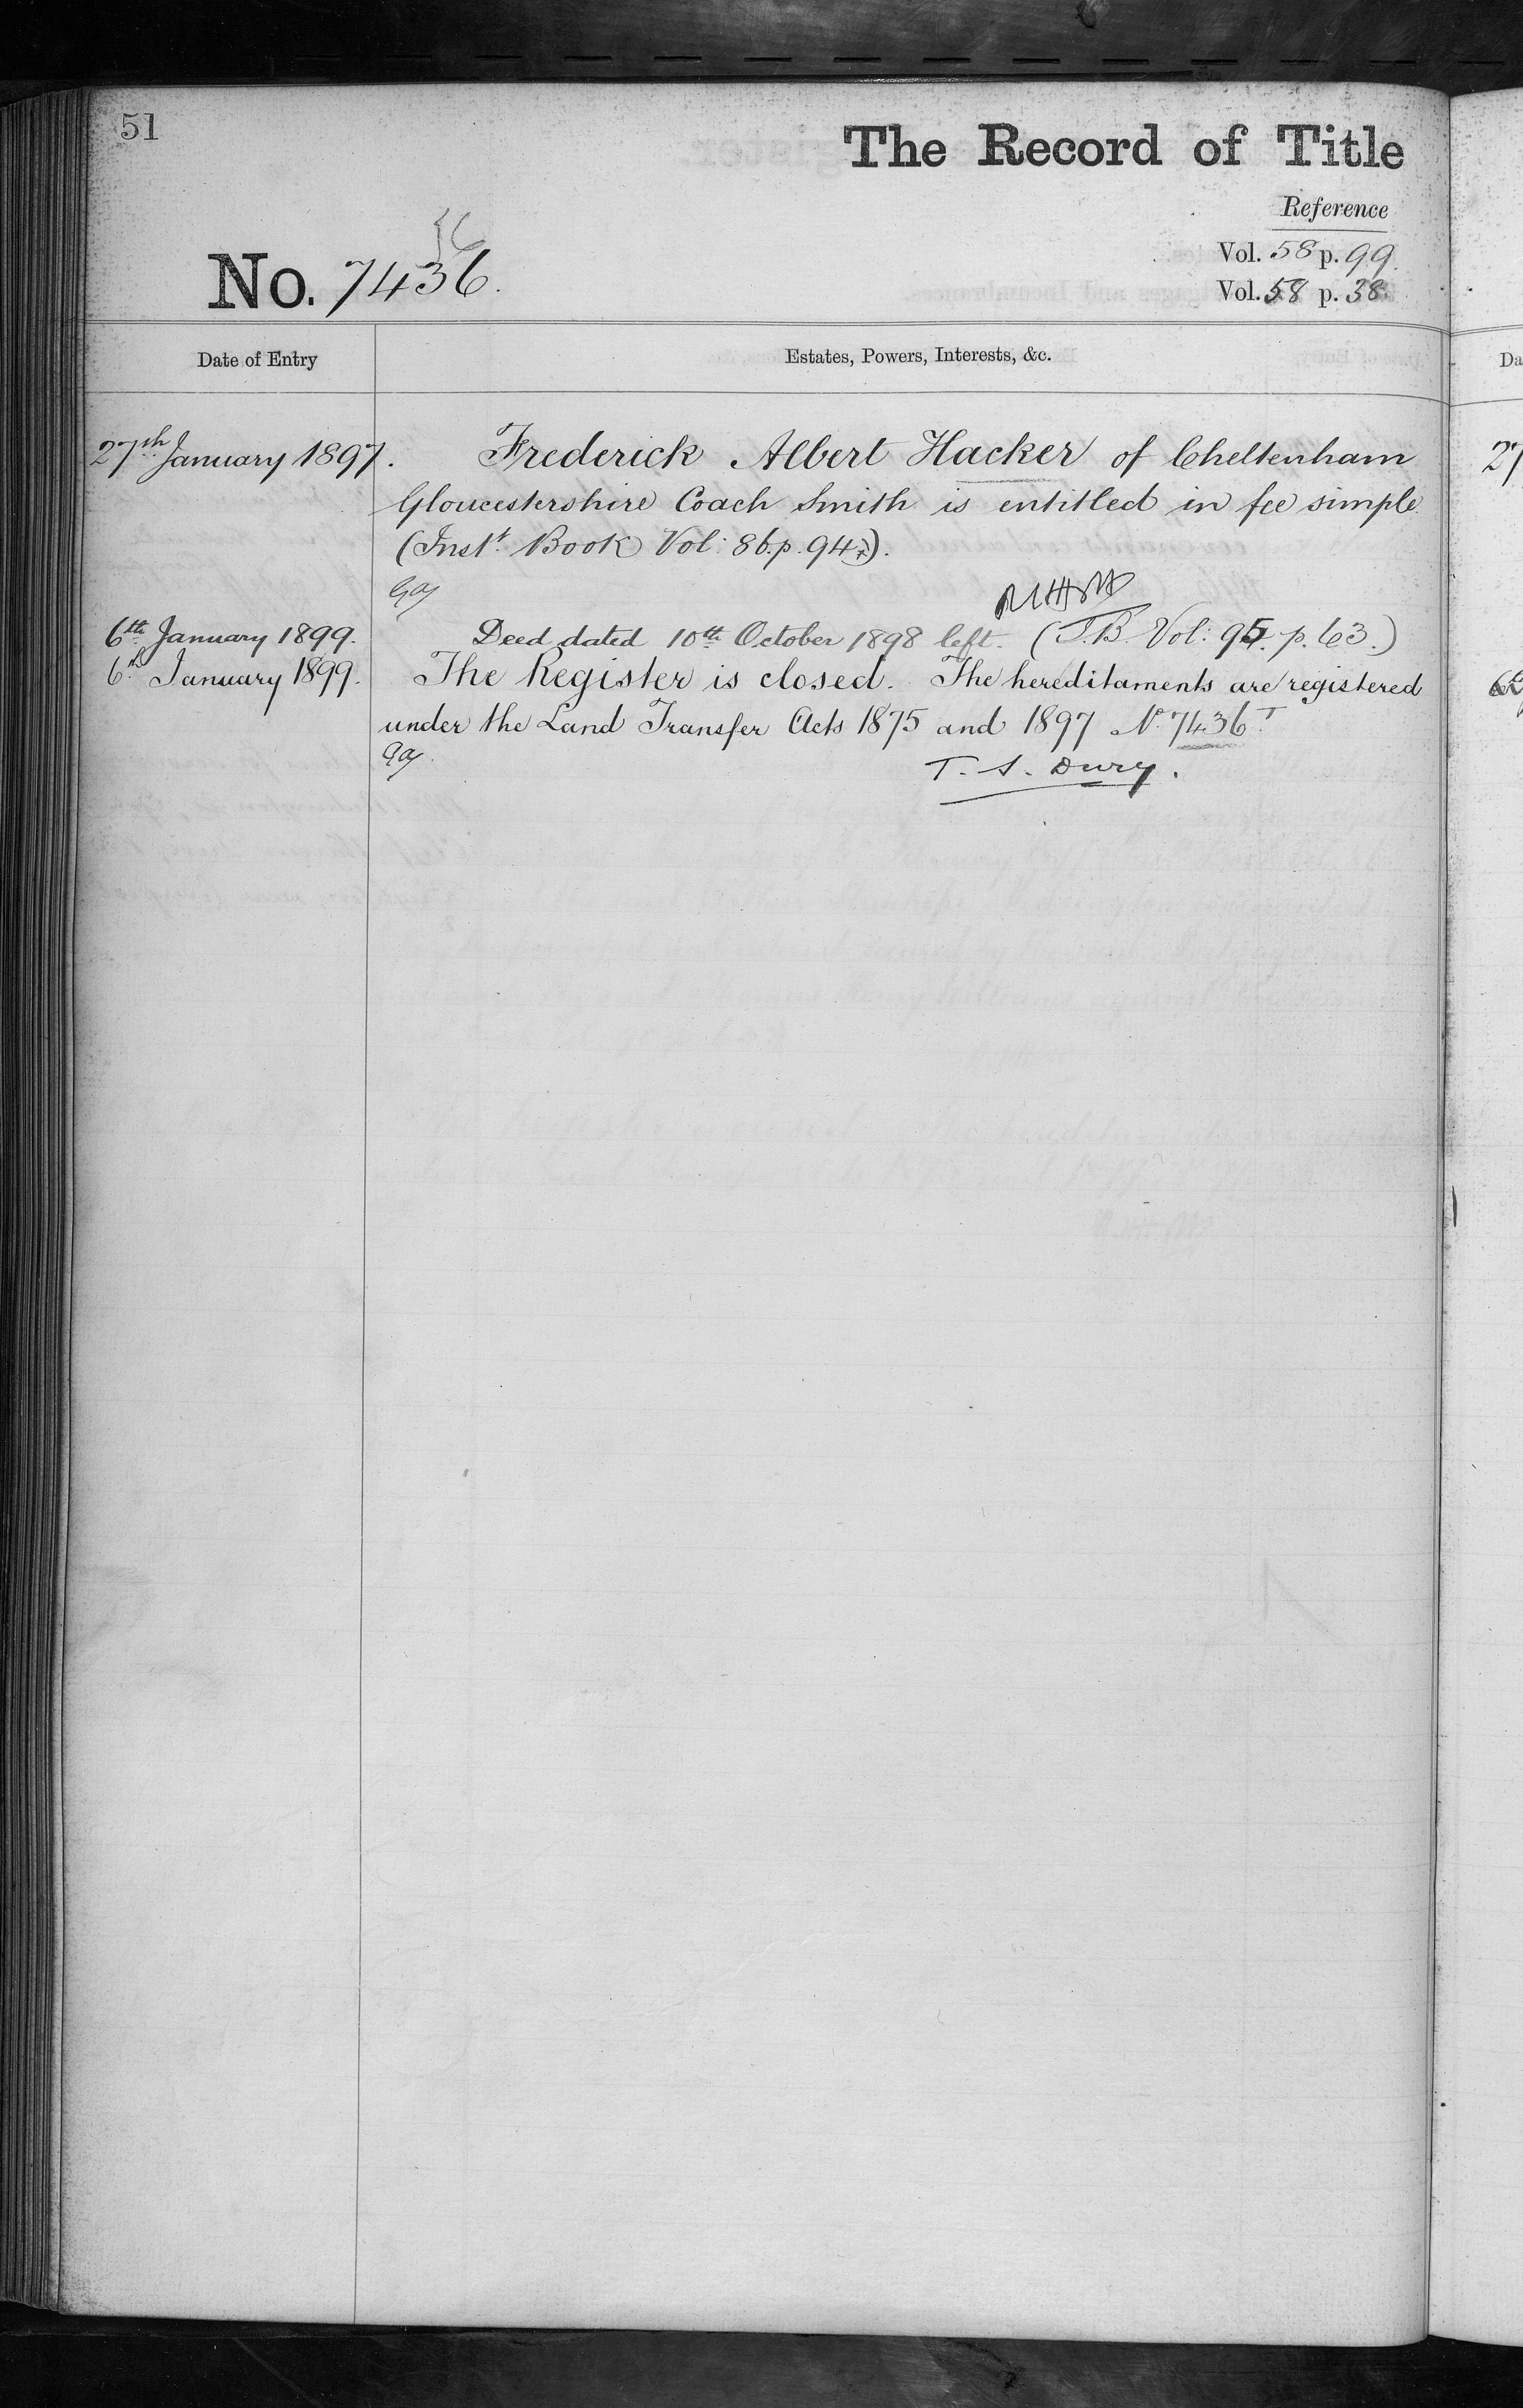 51
The Record of Title
Reference
Vol. 58 p. 99.
No. 7436.
Vol. 58 p. 38.
Date of Entry
Estates, Powers, Interests, &c.
Da
27th January 1897.
Frederick Albert Hacker of Cheltenham
27
Gloucestershire Coach Smith is entitled in fee simple
(Inst. Book Vol: 86. p. 94).
6th January 1899.
Deed dated 10th October 1898 left. (I.B. Vol: 95. p. 63.)
6th January 1899.
The Register is closed. The hereditaments are registered
under the Land Transfer Acts 1875 and 1897 No. 7436T.
T. S. Dury.